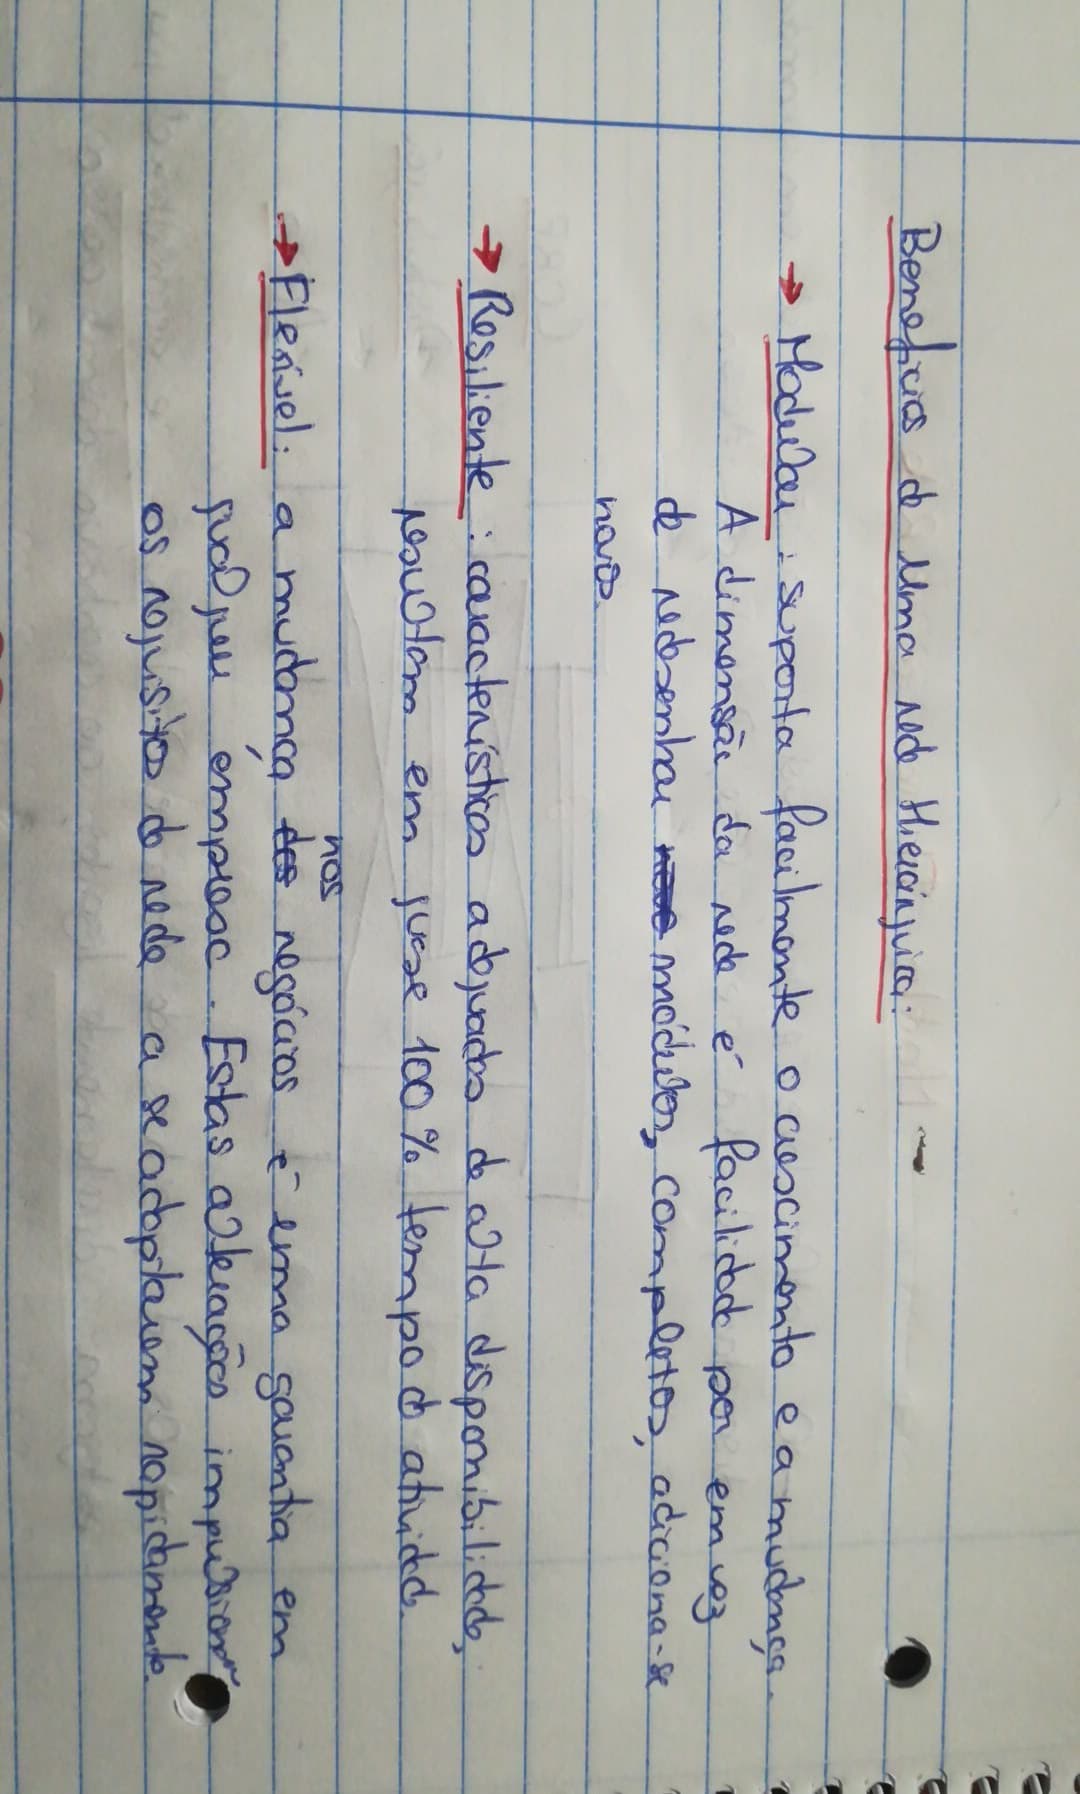 Beneficios de uma rede Hierárquica:
→ Modular : suporta facilmente o crescimento e a mudança.
A dimensão da rede é facilidade por em vez
de redesenhar módulos, completos, adiciona-se
novos.
→ Resiliente : características adequadas de alta disponibilidade,
resultam em quase 100% tempo de atividade.
nos
→ Flexível: a mudança dos negócios é uma garantia em
qualquer empresa. Estas alterações impulsionam
os requisitos de rede a se adaptarem rapidamente.